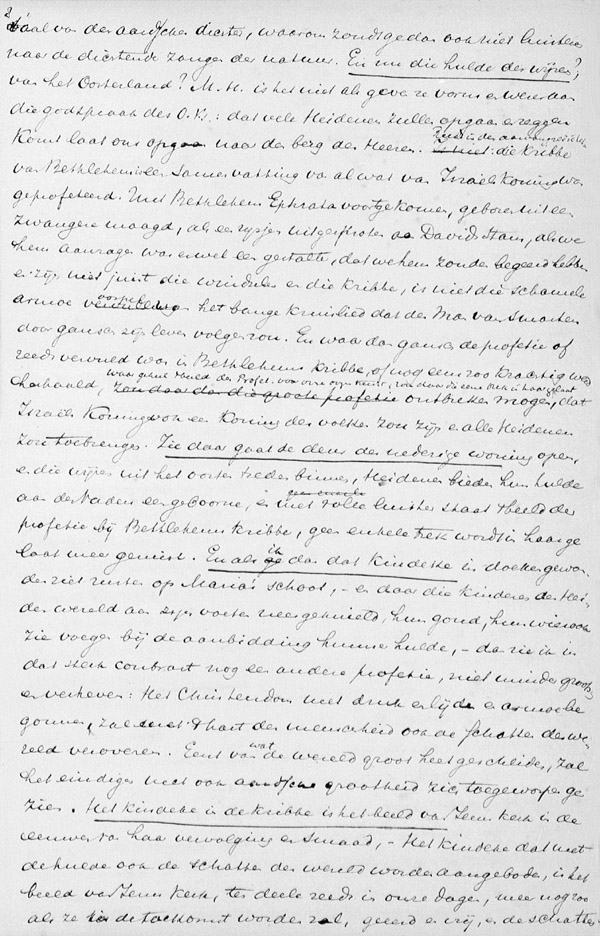 2
taal van den aardschen dichter, waarom zoudt ge dan ook niet luisteren
naar de dichtende zangen der natuur. En nu die hulde der wijzen?,
van het Oosterland? M. H. is het niet als geven ze vorm en wezen aan
die godspraak des O.V.: dat vele Heidenen zullen opgaan en zeggen
Komt laat ons opgaan naar den berg des Heeren. die kribbe
van Bethlehem een samenvatting van al wat van Israels Koning was
geprofeteerd. Uit Bethlehem Ephrata voortgekomen, geboren uit een
zwangere maagd, als een rijsje uitgesproten aan Davids stam, als we
hem aanzagen was er wel een gestalte, dat we hem zouden begeerd hebben
en zijn niet juist die windselen en die kribbe, is niet die schamele
armoe het bange kruislied dat den Man van Smarten
door gansch zijn leven volgen zou. En waar dan gansch de profetie of
reeds vervuld was in Bethlehems kribbe, of nog eens zoo krachtig werd
herhaald, zou daar dan die groote profetie ontbreken mogen, dat
Israels Koning ook een Koning der volken zou zijn en alle Heidenen
zou toebrengen. Zie daar gaat de deur der nederige woning open,
en die wijzen uit het oosten treden binnen, Heidenen bieden hun hulde
aan der Vaderen eengeboorne, en met vollen luister staat 't beeld der
profetie bij Bethlehems kribbe, geen enkele trek wordt in haar ge
laat meer gemist. En als ik dan dat kindeke in doeken gewon
den zie rusten op Maria's schoot, – en daar die kinderen der Hei-
den wereld aan zijn voeten neergeknield, hun goud, hun wierook
zie voegen bij de aanbidding hunner hulde, – dan zie ik in
dat sterk contrast nog een andere profetie, niet minder groot
en verheven: Het Christendom met druk en lijden en armoe be
gonnen, zal eens met 't hart der menschheid ook de schatten der we-
reld veroveren. Eens van wat de wereld groot heet gescheiden, zal
het eindigen met ook aardsche grootheid zich toegeworpen te
zien. Het kindeke in de kribbe is het beeld van Jezus kerk in de
eeuwen van haar vervolging en smaad, – Het kindeke dat met
de hulde ook de schatten der wereld worden aangeboden, is het
beeld van Jezus kerk, ten deele reeds in onze dagen, meer nog zoo
als ze in de toekomst worden zal, geëerd en vrij, en de schatten